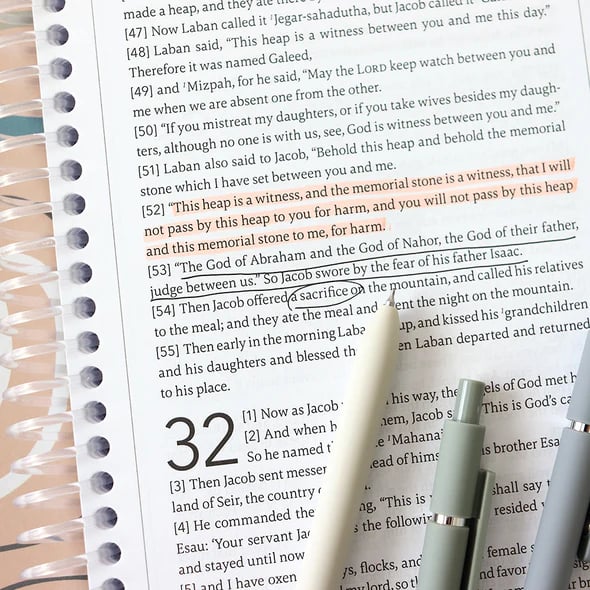 made a heap, and they ate there by
[47] Now Laban called it ¹Jegar-sahadutha, but Jacob called it
[48] Laban said, “This heap is a witness between you and me this day.”
Therefore it was named Galeed,
[49] and ¹Mizpah, for he said, “May the LORD keep watch between you and
me when we are absent one from the other.
[50] “If you mistreat my daughters, or if you take wives besides my daugh-
ters, although no one is with us, see, God is witness between you and me.”
[51] Laban also said to Jacob, “Behold this heap and behold the memorial
stone which I have set between you and me.
[52] “This heap is a witness, and the memorial stone is a witness, that I will
not pass by this heap to you for harm, and you will not pass by this heap
and this memorial stone to me, for harm.
[53] “The God of Abraham and the God of Nahor, the God of their father,
judge between us.” So Jacob swore by the fear of his father Isaac.
[54] Then Jacob offered a sacrifice on the mountain, and called his relatives
to the meal; and they ate the meal and ent the night on the mountain.
[55] Then early in the morning Laba up, and kissed his ¹grandchildren
and his daughters and blessed th en Laban departed and returned
to his place.
32 [1] Now as Jacob his way, the els of God met h
[2] And when h hem, Jacob s This is God's ca
So he named t e ¹Mahanai
[3] Then Jacob sent messer ead of hims s brother Esa
land of Seir, the country
[4] He commanded the ng, “This is shall say t
Esau: ‘Your servant Jac s the followin resided
and stayed until now
[5] and I have oxen ys, flocks, and female s
my lord, so t nd favor